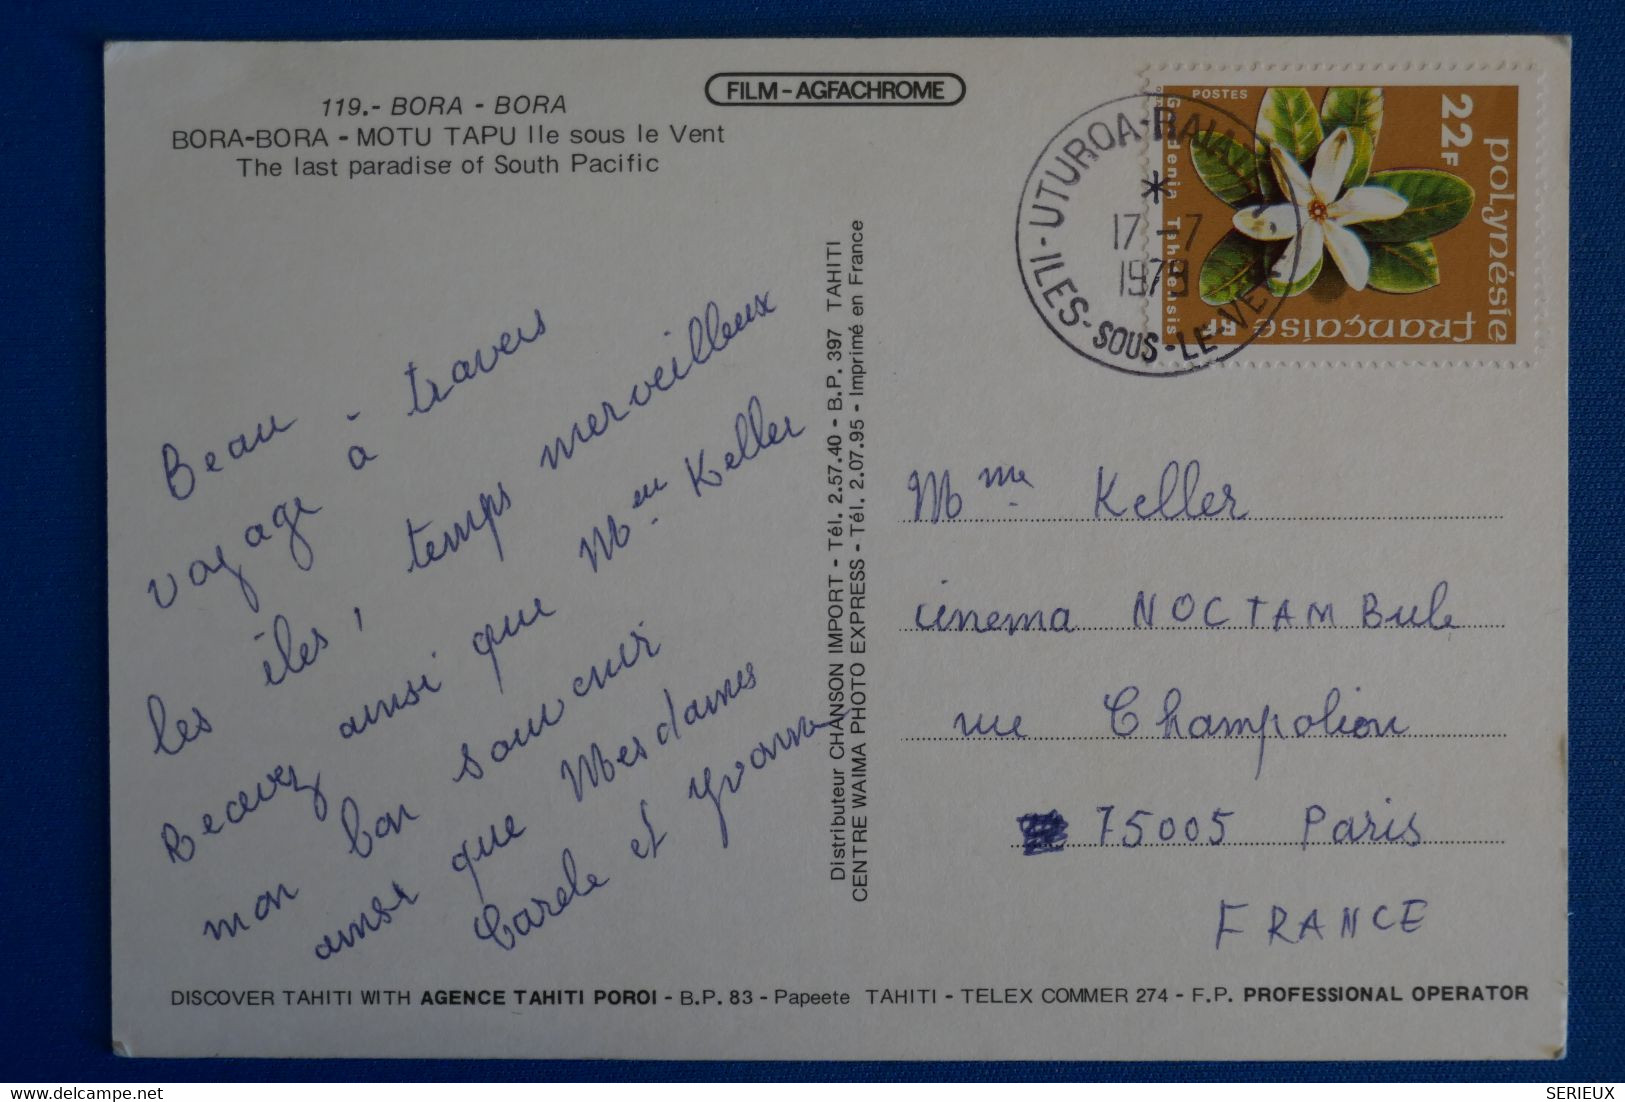 FILM - AGFACHROME
119.- BORA - BORA
BORA-BORA - MOTU TAPU Ile sous le Vent
The last paradise of South Pacific
POSTES
22F
polynésie
française RF
Gardenia Tahitensis
UTUROA-RAIATEA
*
17 -7
1979
ILES-SOUS-LE-VENT
Beau
voyage à travers
les îles, temps merveilleux
Recevez ainsi que Mme Keller
mon bon souvenir
ainsi que Mesdames
Carole et Yvonne
Distributeur CHANSON IMPORT - Tél. 2.57.40 - B.P. 397 TAHITI
CENTRE WAIMA PHOTO EXPRESS - Tél. 2.07.95 - Imprimé en France
Mme Keller
cinema NOCTAMBule
rue Champolion
75005 Paris
FRANCE
DISCOVER TAHITI WITH AGENCE TAHITI POROI - B.P. 83 - Papeete TAHITI - TELEX COMMER 274 - F.P. PROFESSIONAL OPERATOR
SERIEUX